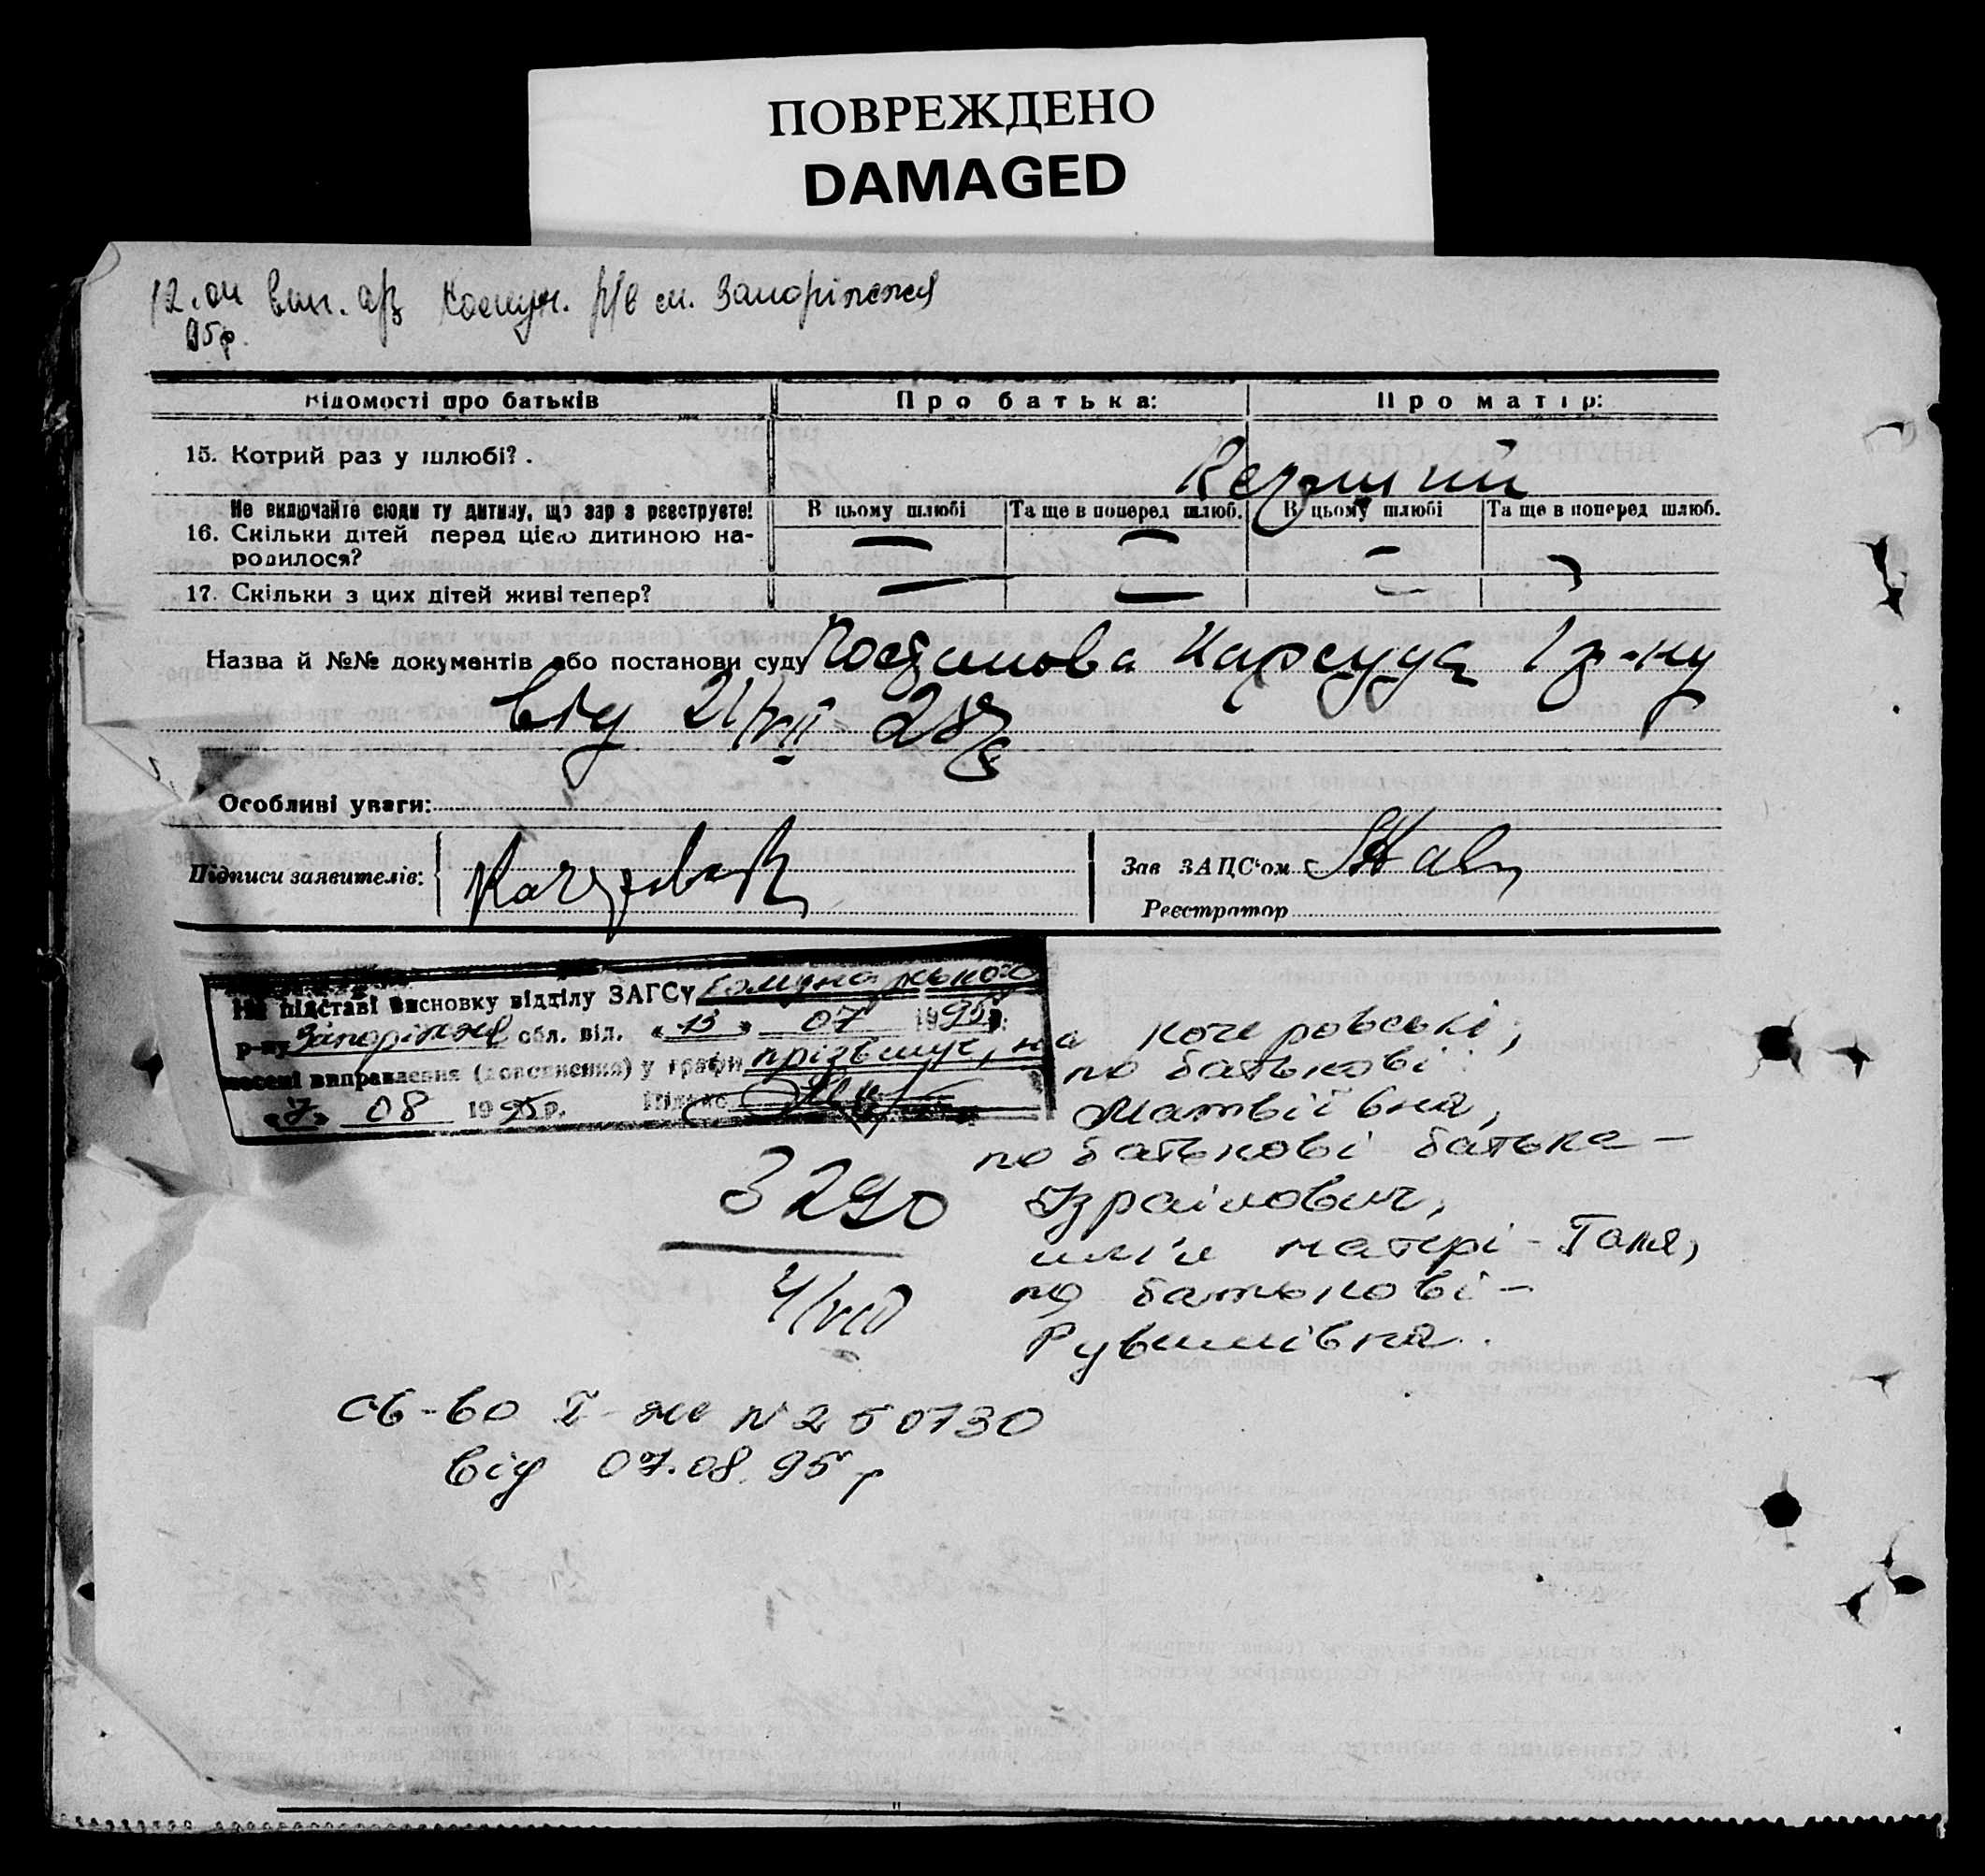 ПОВРЕЖДЕНО
DAMAGED
12.04 вик. Комун. р/в м. Запоріжжя
95р.
Відомості про батьків
Про батька:
Про матір:
15. Котрий раз у шлюбі?.
Не включайте сюди ту дитину, що зараз реєструєте!
В цьому шлюбі
Та ще в поперед шлюб.
В цьому шлюбі
Та ще в поперед шлюб.
16. Скільки дітей перед цією дитиною на-
родилося?
— — —
17. Скільки з цих дітей живі тепер?
— — —
Назва й №№ документів або постанови суду Нарсуда 1 р-ну
від 21/VII 28р
Особливі уваги:
Підписи заявителів:
Зав ЗАГС'ом
Реєстратор
На підставі висновку відділу ЗАГСу Комунарського
р-ну Запоріжжя обл. від. «13» 07 1995р.
внесені виправлення (доповнення) у графи прізвище, на Кочеровські,
«7» 08 1995р. Підпис
по батькові
Матвіївна,
по батькові батька –
Ізраілович,
им'я матері – Таня,
по батькові –
Рувимівна.
3290
4/VIII
св-во I-же № 250730
від 07.08.95р